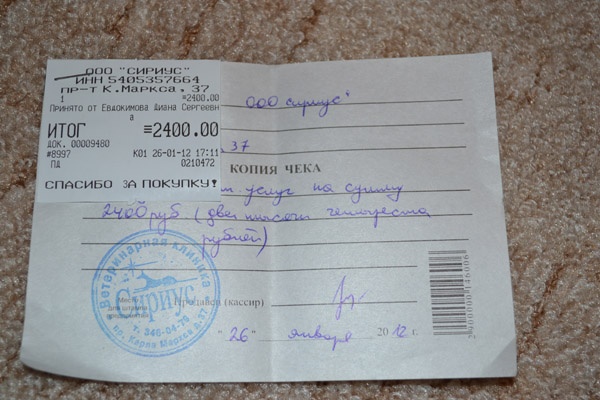 ООО "СИРИУС"
ИНН 5405357664
ПР-Т К.Маркса, 37
1 ≡2400.00
Принято от Евдокимова Диана Сергеевн
а
ИТОГ ≡2400.00
ДОК. 00009480
#8997 К01 26-01-12 17:11
ПД 0210472
СПАСИБО ЗА ПОКУПКУ!
ООО Сириус"
37
КОПИЯ ЧЕКА
услуг на сумму
2400 руб (две тысячи четыреста
рублей)
Ветеринарная клиника
Сириус
т. 346-04-79
пл. Карла Маркса д. 37
Место
для штампа
предприятия
Продавец (кассир)
"26" января 2012 г.